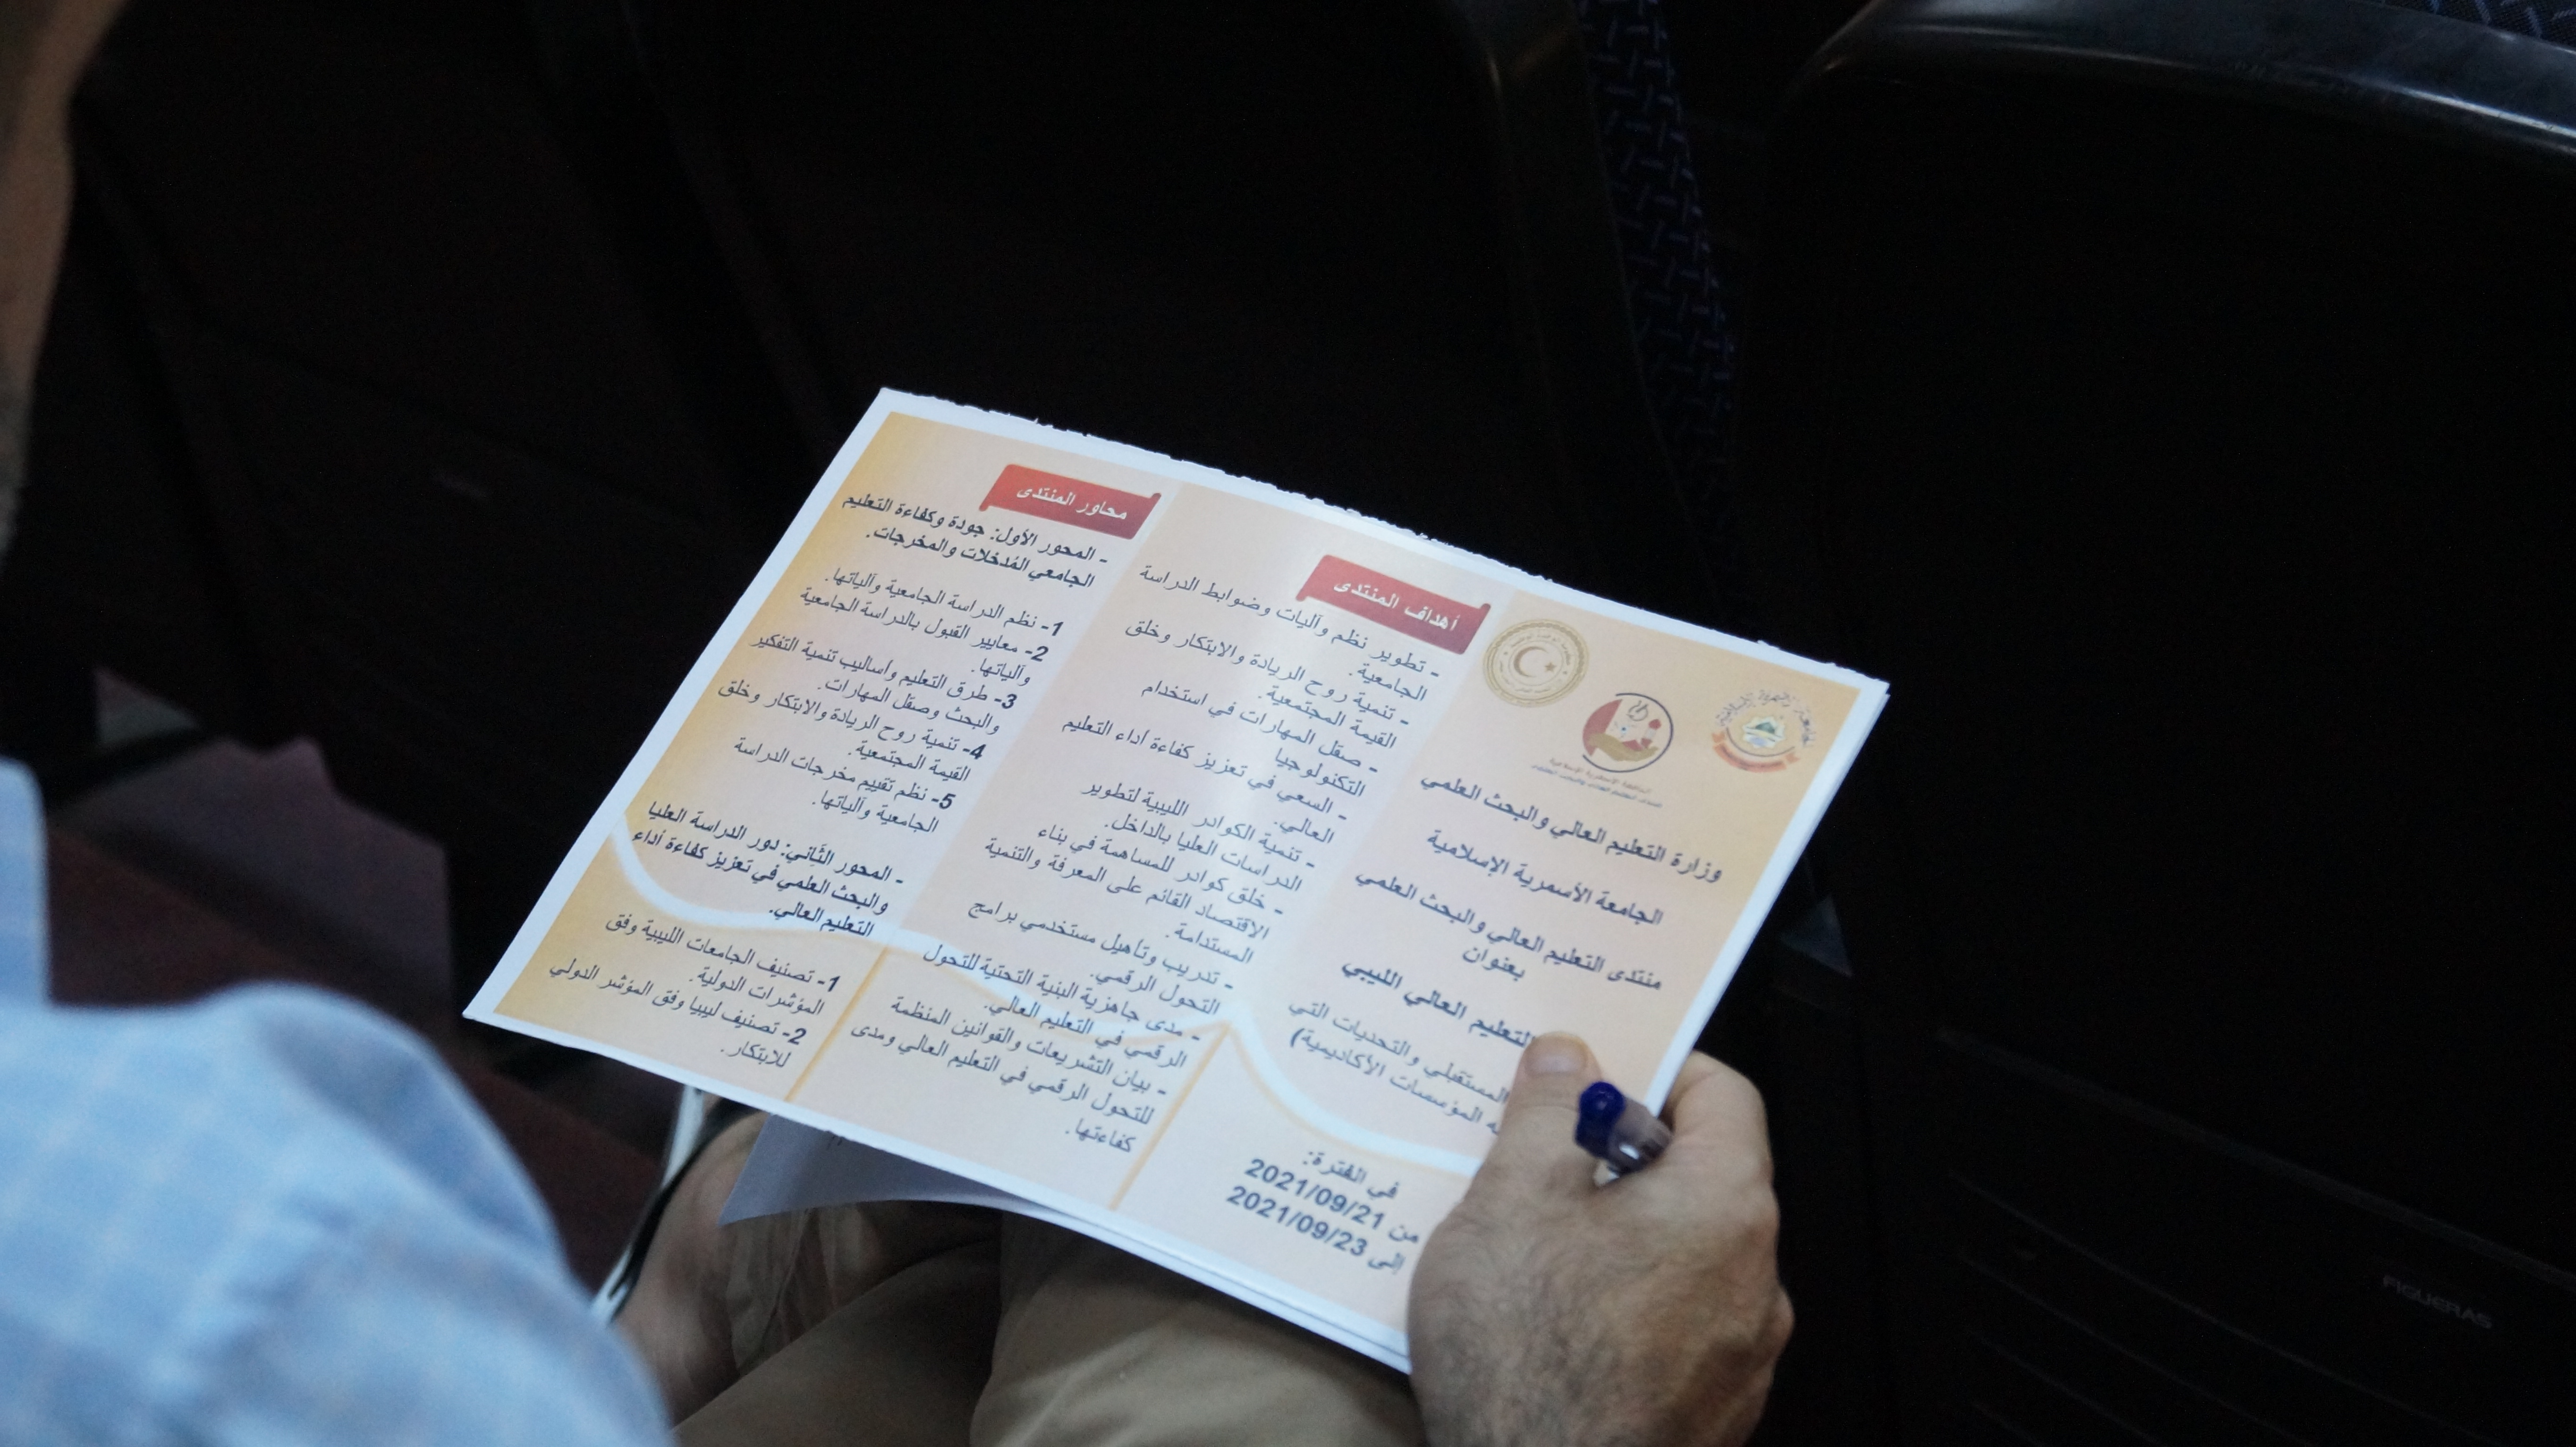 وزارة التعليم العالي والبحث العلمي
الجامعة الأسمرية الإسلامية
منتدى التعليم العالي والبحث العلمي
بعنوان
التعليم العالي الليبي
المستقبلي والتحديات التي
المؤسسات الأكاديمية)
في الفترة:
من 2021/09/21
إلى 2021/09/23
أهداف المنتدى
- تطوير نظم وآليات وضوابط الدراسة
الجامعية.
- تنمية روح الريادة والابتكار وخلق
القيمة المجتمعية.
- صقل المهارات في استخدام
التكنولوجيا
- السعي في تعزيز كفاءة أداء التعليم
العالي.
- تنمية الكوادر الليبية لتطوير
الدراسات العليا بالداخل.
- خلق كوادر للمساهمة في بناء
الاقتصاد القائم على المعرفة والتنمية
المستدامة.
- تدريب وتأهيل مستخدمي برامج
التحول الرقمي.
- مدى جاهزية البنية التحتية للتحول
الرقمي في التعليم العالي.
- بيان التشريعات والقوانين المنظمة
للتحول الرقمي في التعليم العالي ومدى
كفاءتها.
محاور المنتدى
- المحور الأول: جودة وكفاءة التعليم
الجامعي المُدخلات والمخرجات.
1- نظم الدراسة الجامعية وآلياتها.
2- معايير القبول بالدراسة الجامعية
وآلياتها.
3- طرق التعليم وأساليب تنمية التفكير
والبحث وصقل المهارات.
4- تنمية روح الريادة والابتكار وخلق
القيمة المجتمعية.
5- نظم تقييم مخرجات الدراسة
الجامعية وآلياتها.
- المحور الثاني: دور الدراسة العليا
والبحث العلمي في تعزيز كفاءة أداء
التعليم العالي.
1- تصنيف الجامعات الليبية وفق
المؤشرات الدولية.
2- تصنيف ليبيا وفق المؤشر الدولي
للابتكار.
FIGUERAS